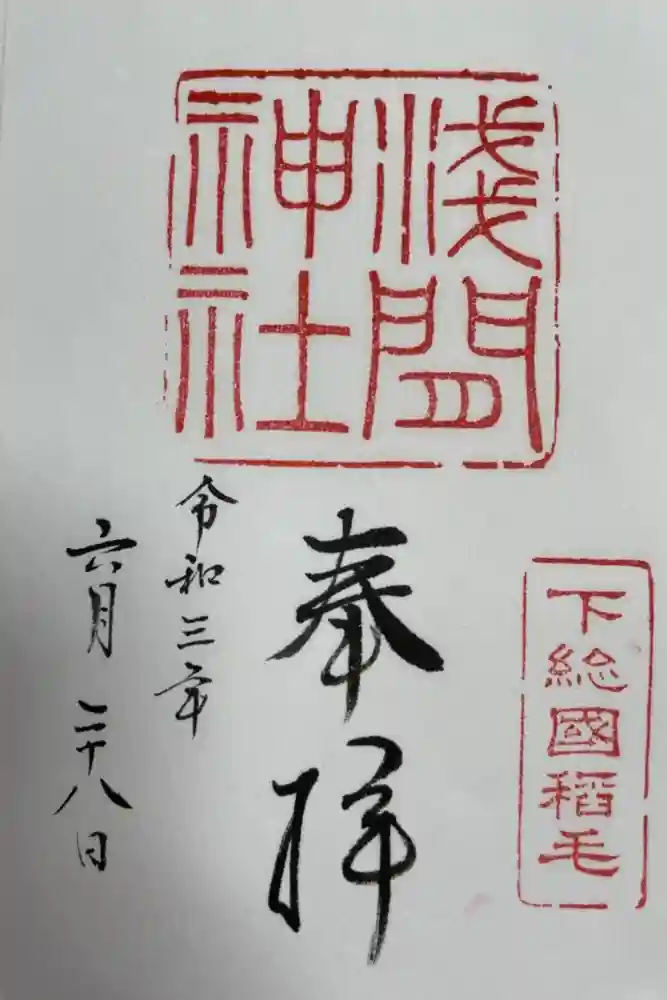 浅間
神社
下総國稲毛
奉拝
令和三年
六月二十八日